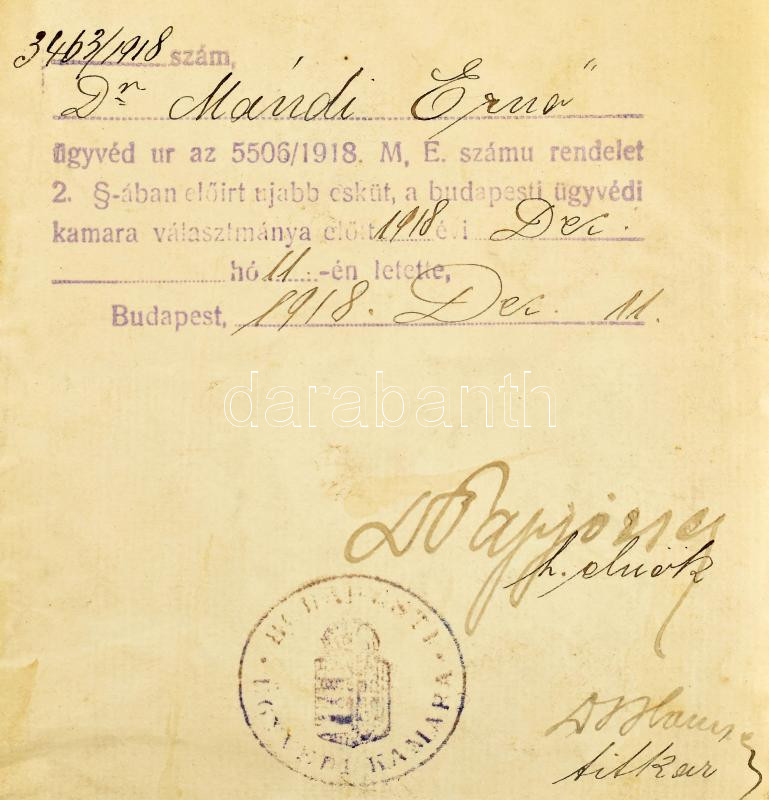 3463/1918 szám,
Dr Mándi Ernő
ügyvéd ur az 5506/1918. M. E. számu rendelet
2. §-ában előirt ujabb esküt, a budapesti ügyvédi
kamara választmánya előtt 1918 évi Dec.
hó 11 -én letette,
Budapest, 1918. Dec. 11.
darabanth
Dr Pap József
h. elnök
BUDAPESTI
ÜGYVÉDI KAMARA
Dr
titkár